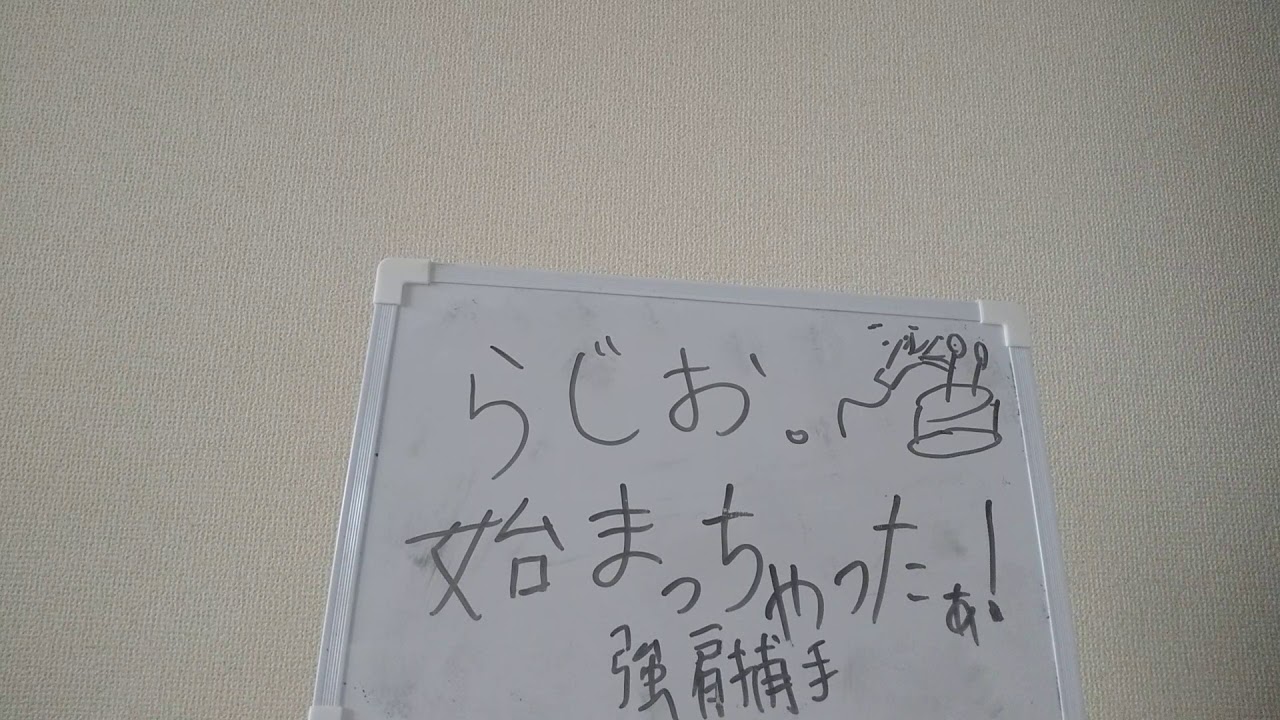 らじお。
始まっちゃったぁ!
強肩捕手